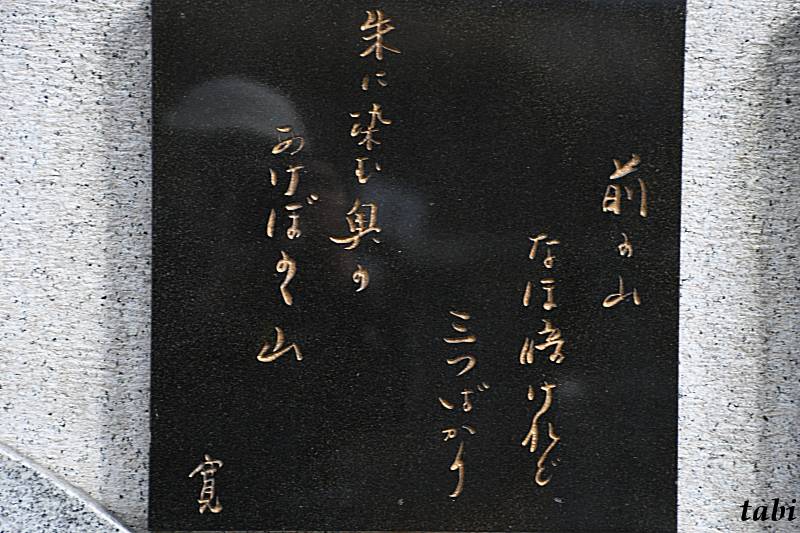 前の山
なほ暗けれど
三つばかり
朱に染む奥の
あけぼのゝ山
寛
tabi